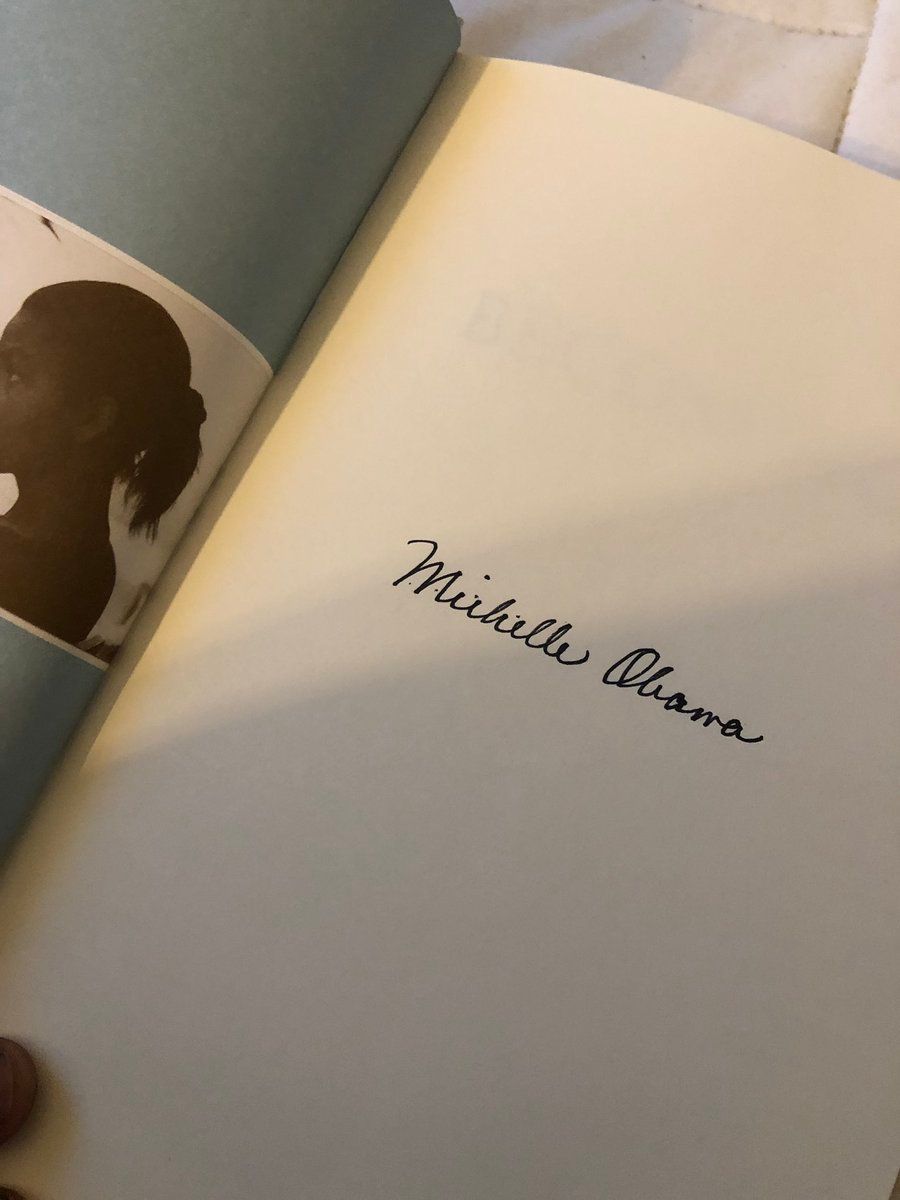 Michelle Obama